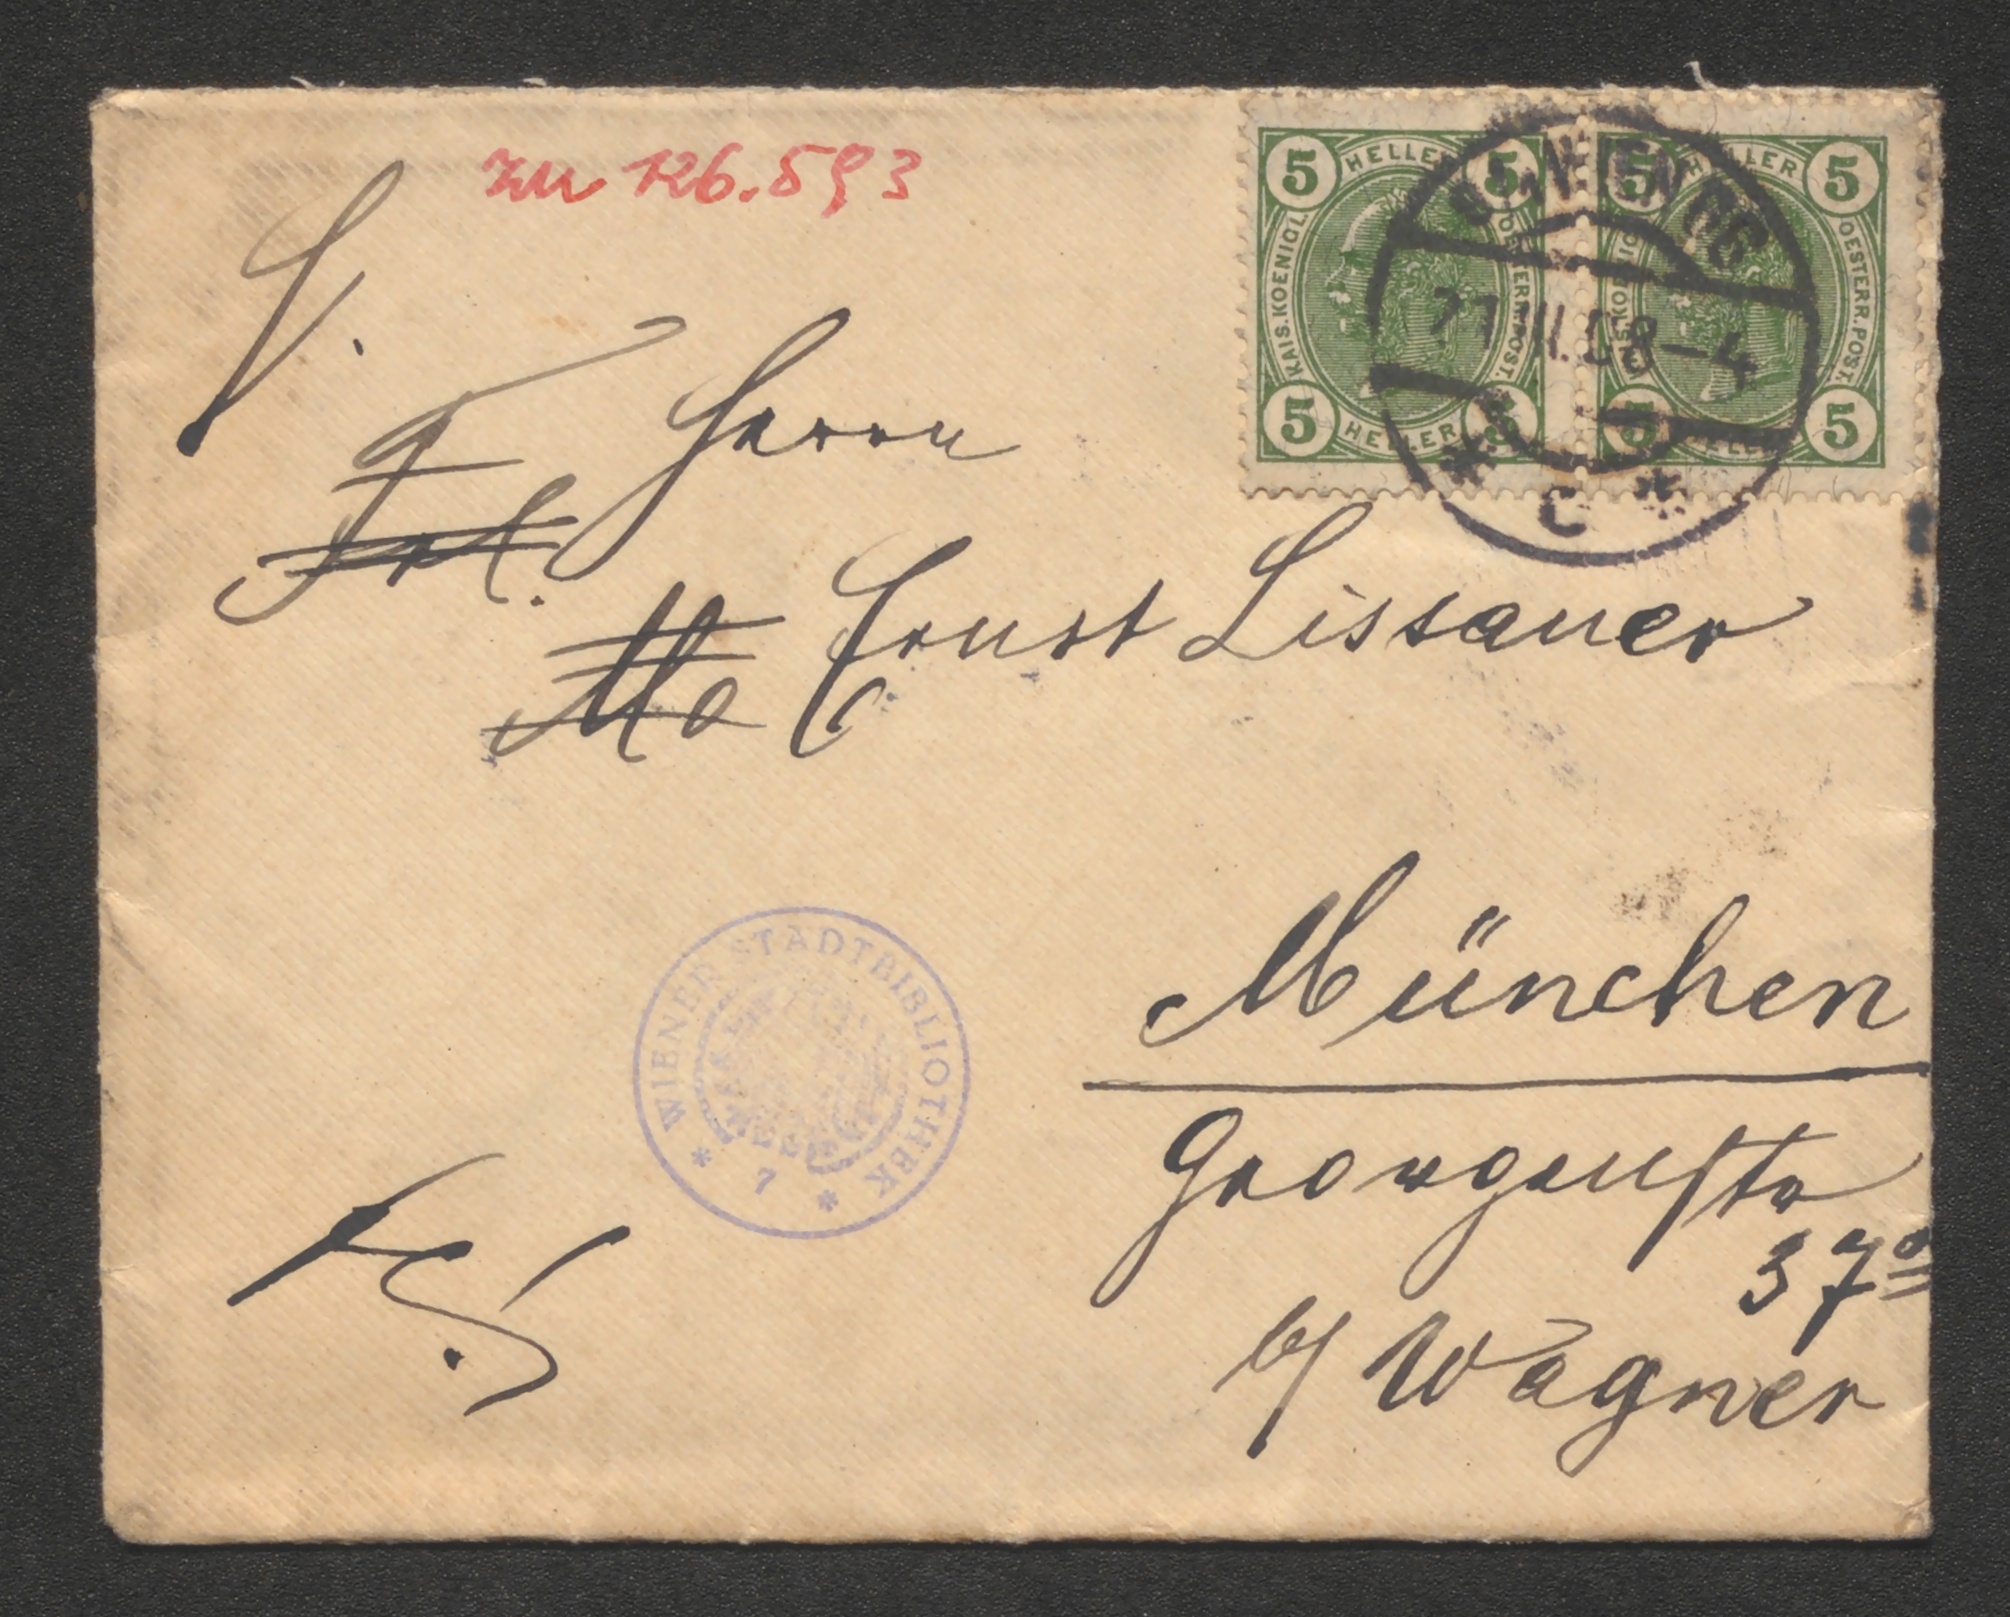 zu 126.593
5 HELLER 5
5 HELLER 5
KAIS. KOENIGL. OESTERR. POST.
5 HELLER 5
5 HELLER 5
OESTERR. POST.
WIEN 66
08-4
* C *
Herrn
Frl.
Ernst Lissauer
München
Georgenstr
37
b/ Wagner
* WIENER STADTBIBLIOTHEK *
7